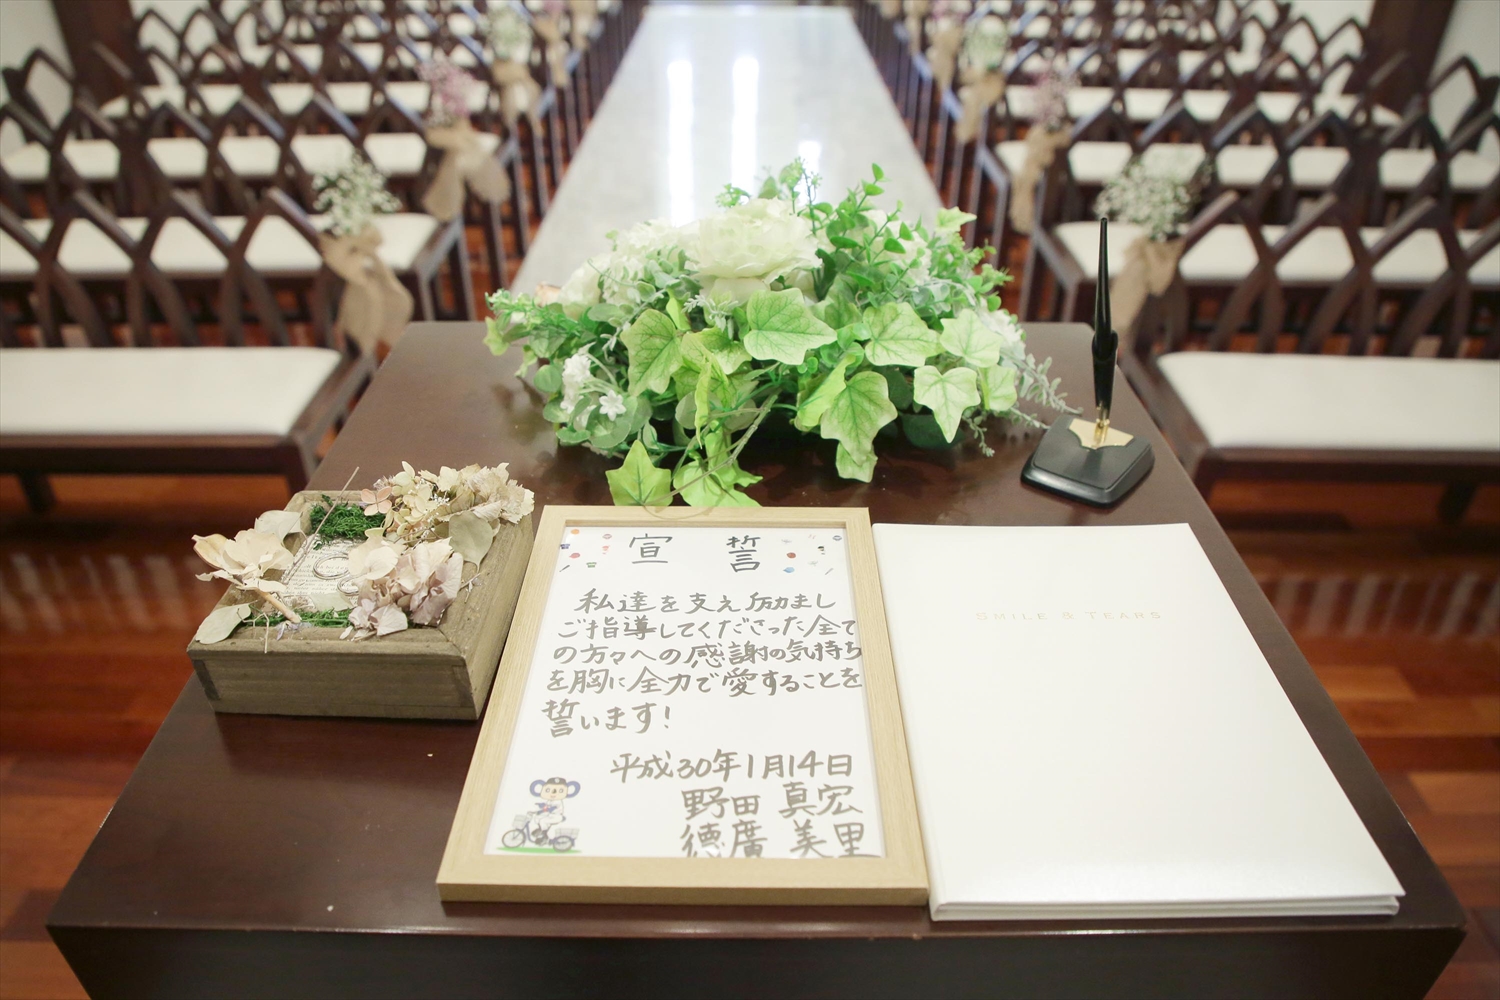 宣誓
私達を支え励まし
ご指導してくださった全て
の方々への感謝の気持ち
を胸に全力で愛することを
誓います!
平成30年1月14日
野田 真宏
徳廣 美里
SMILE & TEARS